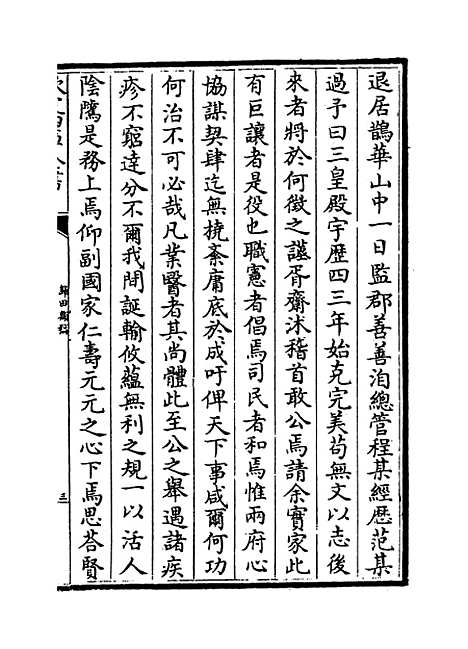 退居鵲華山中一日監郡善善洎總管程某經歴范某
過予曰三皇殿宇歴四三年始克完美茍無文以志後
來者將於何徴之謹胥齋沐稽首敢公焉請余實家此
有巨讓者是役也職憲者倡焉司民者和焉惟兩府心
協謀契肆迄無撓紊庸底於成吁俾天下事咸爾何功
何治不可必哉凡業醫者其尚體此至公之舉遇諸疾
疹不窮逹分不爾我間誕輸攸藴無利之規一以活人
隂隲是務上焉仰副國家仁壽元元之心下焉思荅賢
歸田類稿
三